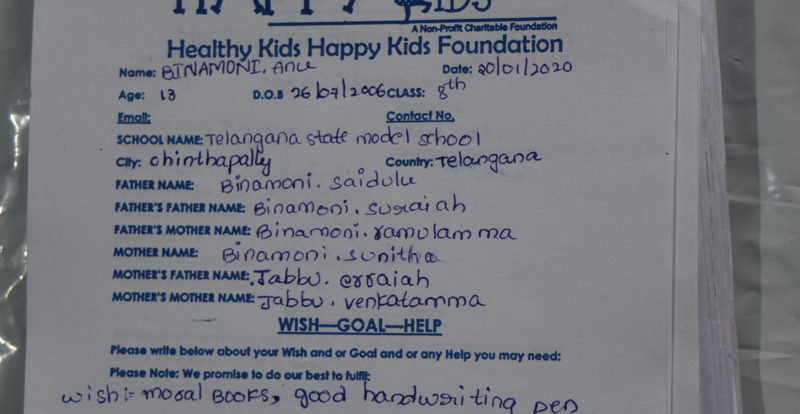 HAPPY KIDS
A Non-Profit Charitable Foundation
Healthy Kids Happy Kids Foundation
Name: BINAMONI. Anu Date: 20/01/2020
Age: 13 D.O.B 26/07/2006 CLASS: 8th
Email: Contact No.
SCHOOL NAME: Telangana state model school
City: chinthapally Country: Telangana
FATHER NAME: Binamoni. saidulu
FATHER'S FATHER NAME: Binamoni. suraiah
FATHER'S MOTHER NAME: Binamoni. ramulamma
MOTHER NAME: Binamoni. sunitha
MOTHER'S FATHER NAME: Jabbu. erraiah
MOTHER'S MOTHER NAME: Jabbu. venkatamma
WISH—GOAL—HELP
Please write below about your Wish and or Goal and or any Help you may need:
Please Note: We promise to do our best to fulfil:
wish:- moral BOOKS, good handwriting pen